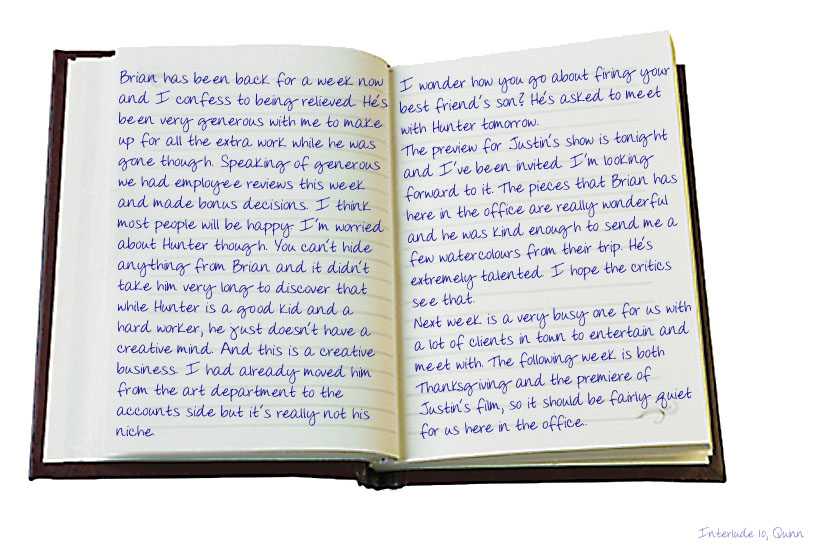 Brian has been back for a week now
and I confess to being relieved. He's
been very generous with me to make
up for all the extra work while he was
gone though. Speaking of generous
we had employee reviews this week
and made bonus decisions. I think
most people will be happy. I'm worried
about Hunter though. You can't hide
anything from Brian and it didn't
take him very long to discover that
while Hunter is a good kid and a
hard worker, he just doesn't have a
creative mind. And this is a creative
business. I had already moved him
from the art department to the
accounts side but it's really not his
niche.
I wonder how you go about firing your
best friend's son? He's asked to meet
with Hunter tomorrow.
The preview for Justin's show is tonight
and I've been invited. I'm looking
forward to it. The pieces that Brian has
here in the office are really wonderful
and he was kind enough to send me a
few watercolours from their trip. He's
extremely talented. I hope the critics
see that.
Next week is a very busy one for us with
a lot of clients in town to entertain and
meet with. The following week is both
Thanksgiving and the premiere of
Justin's film, so it should be fairly quiet
for us here in the office..
Interlude 10, Qunn